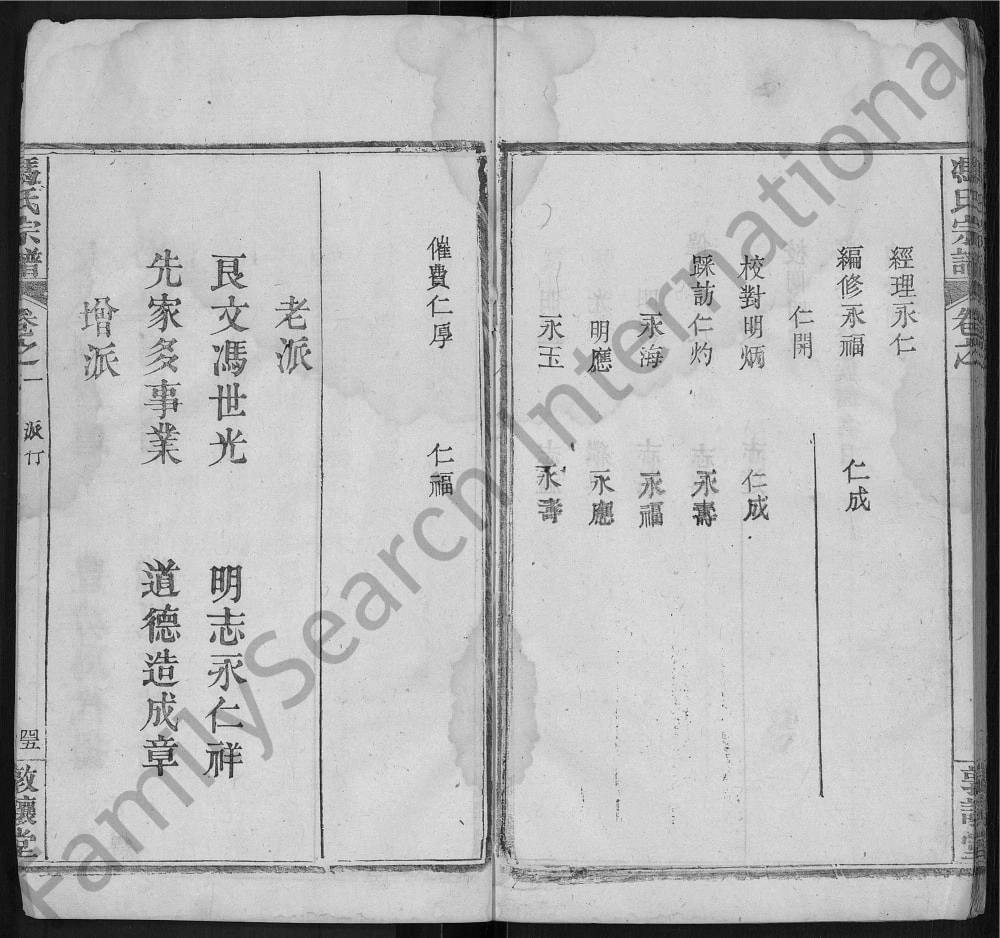 馮氏宗譜 卷之一
經理永仁
編修永福 仁成
仁開
校對明炳 仁成
踩訪仁灼 永壽
永海 永福
明應 永應
永玉 永壽
催費仁厚 仁福
老派
良文馮世光 明志永仁祥
先家多事業 道德造成章
增派
馮氏宗譜 卷之一 派行 四五 敦讓堂
FamilySearch International